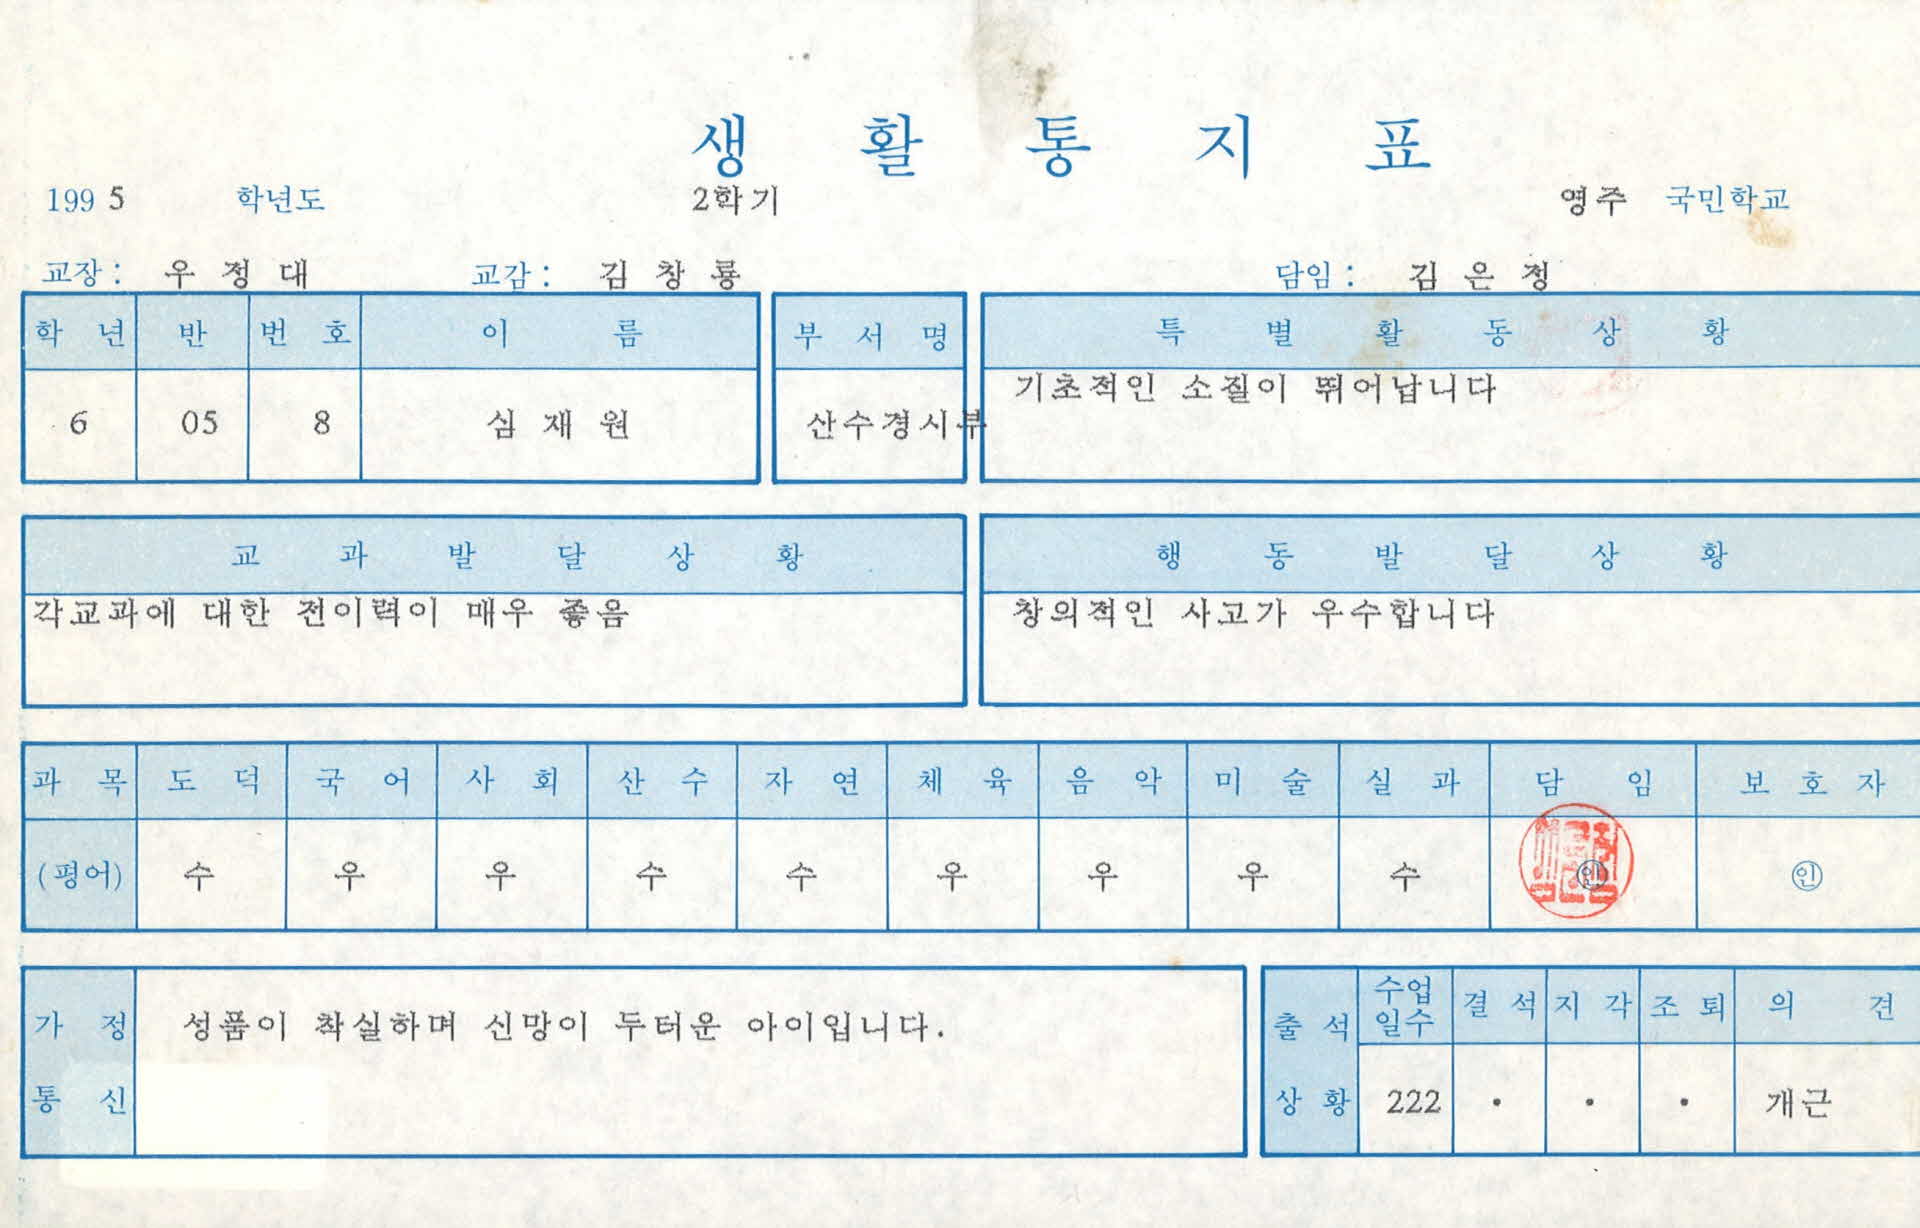 생 활 통 지 표
1995 학년도 2학기 영주 국민학교
교장 : 우 정 대 교감 : 김 창 룡 담임 : 김 은 정
학 년 반 번 호 이 름 부 서 명 특 별 활 동 상 황
6 05 8 심 재 원 산수경시부 기초적인 소질이 뛰어납니다
교 과 발 달 상 황 행 동 발 달 상 황
각교과에 대한 전이력이 매우 좋음 창의적인 사고가 우수합니다
과 목 도 덕 국 어 사 회 산 수 자 연 체 육 음 악 미 술 실 과 담 임 보 호 자
(평어) 수 우 우 수 수 우 우 우 수 ㉑ ㉑
가 정 통 신 성품이 착실하며 신망이 두터운 아이입니다.
출 석 상 황 수업일수 결 석 지 각 조 퇴 의 견
222 · · · 개근